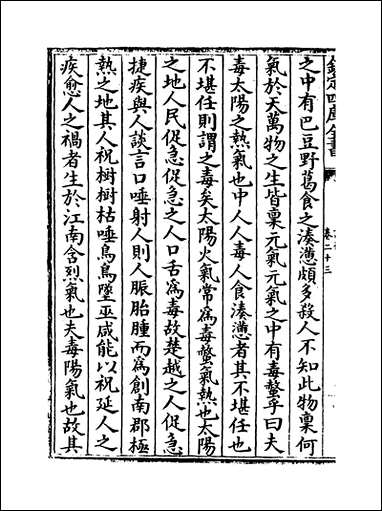 欽定四庫全書
卷二十三
之中有巴豆野葛食之湊懣頗多殺人不知此物稟何
氣於天萬物之生皆稟元氣元氣之中有毒螫乎曰夫
毒太陽之熱氣也中人人毒人食湊懣者其不堪任也
不堪任則謂之毒矣太陽火氣常為毒螫氣熱也太陽
之地人民促急促急之人口舌為毒故楚越之人促急
捷疾與人談言口唾射人則人脤胎腫而為創南郡極
熱之地其人祝樹樹枯唾鳥鳥墜巫咸能以祝延人之
疾愈人之禍者生於江南含烈氣也夫毒陽氣也故其